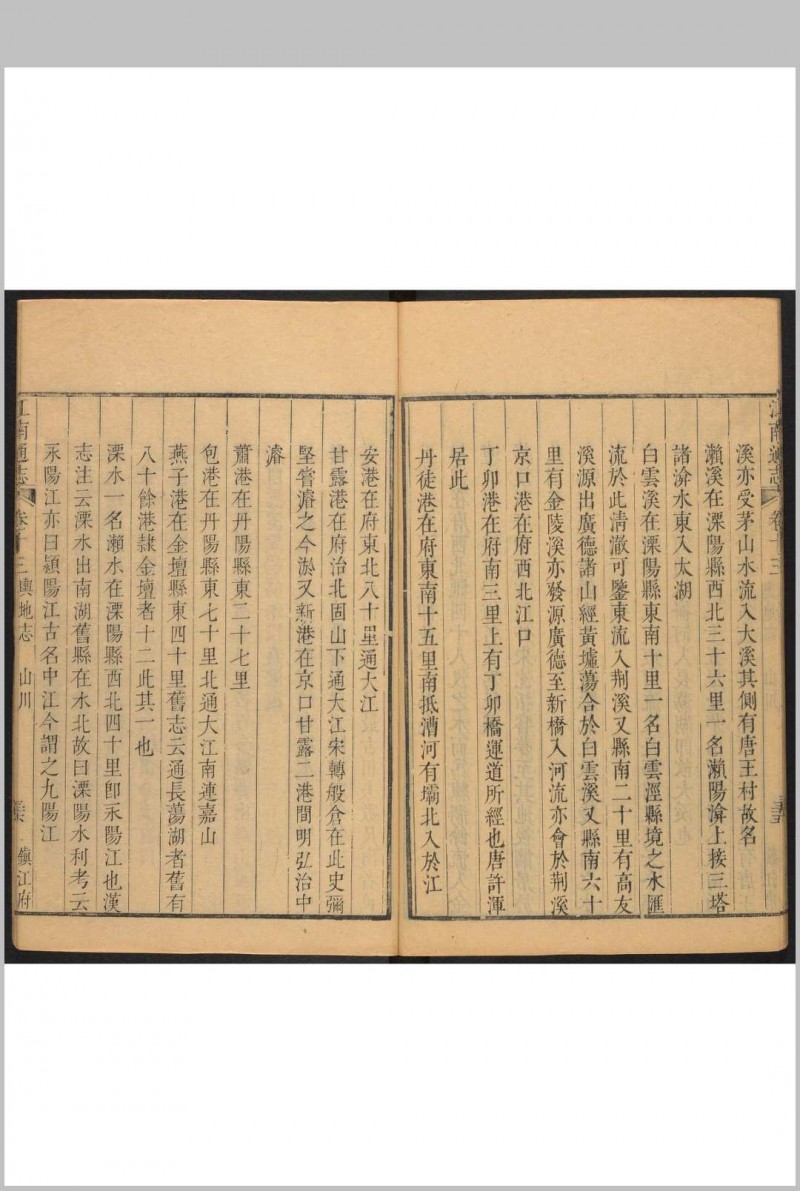 江南通志 卷十三
溪亦受茅山水流入大溪其側有唐王村故名
瀨溪在溧陽縣西北三十六里一名瀨陽渰上接三塔
諸渰水東入太湖
白雲溪在溧陽縣東南十里一名白雲涇縣境之水匯
流於此清澈可鑒東流入荆溪又縣南二十里有高友
溪源出廣德諸山經黃墟蕩合於白雲溪又縣南六十
里有金陵溪亦發源廣德至新橋入河流亦會於荆溪
京口港在府西北江口
丁卯港在府南三里上有丁卯橋運道所經也唐許渾
居此
丹徒港在府東南十五里南抵漕河有壩北入於江
安港在府東北八十里通大江
甘露港在府治北固山下通大江宋轉般倉在此史彌
堅嘗濬之今淤又新港在京口甘露二港間明弘治中
濬
蕭港在丹陽縣東二十七里
包港在丹陽縣東七十里北通大江南連嘉山
燕子港在金壇縣東四十里舊志云通長蕩湖者舊有
八十餘港隸金壇者十二此其一也
溧水一名瀨水在溧陽縣西北四十里卽永陽江也漢
志注云溧水出南湖舊縣在水北故曰溧陽水利考云
永陽江亦曰潁陽江古名中江今謂之九陽江
江南通志 卷十三 輿地志 山川 鎮江府